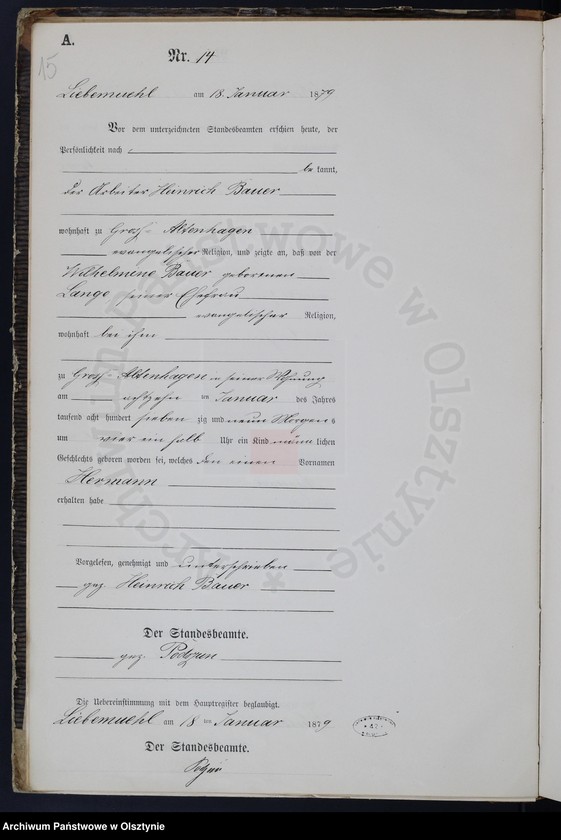 A.
15
Nr. 14
Liebemuehl am 18. Januar 1879
Vor dem unterzeichneten Standesbeamten erschien heute, der
Persönlichkeit nach
be kannt,
der Arbeiter Heinrich Bauer
wohnhaft zu Gross-Altenhagen
evangelischer Religion, und zeigte an, daß von der
Wilhelmine Bauer geborenen
Lange seiner Ehefrau
evangelischer Religion,
wohnhaft bei ihm
zu Gross-Altenhagen in seiner Wohnung
am achtzehn ten Januar des Jahres
tausend acht hundert sieben zig und neun Morgens
um vier ein halb Uhr ein Kind männ lichen
Geschlechts geboren worden sei, welches den einen Vornamen
Hermann
erhalten habe
Vorgelesen, genehmigt und unterschrieben
gez. Heinrich Bauer
Der Standesbeamte.
gez.
Die Uebereinstimmung mit dem Hauptregister beglaubigt.
Liebemuehl am 18 ten Januar 1879
Der Standesbeamte.
Archiwum Państwowe w Olsztynie
Archiwum Państwowe w Olsztynie